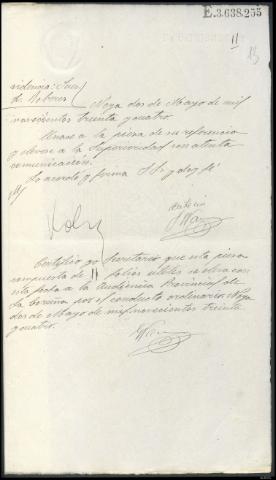 E.3.638.255
11
13
Noya dos de Mayo de mil
novecientos treinta y cuatro.
Unase a la pieza de su referencia
y elevese a la Superioridad con atenta
comunicación.
Lo acordó y firma S Sª y doy fé
Certifico yo Secretario que esta pieza
compuesta de 11 folios utiles se eleva con
esta fecha a la Audiencia Provincial de
La Coruña por el conducto ordinario. Noya
dos de Mayo de mil novecientos treinta
y cuatro.